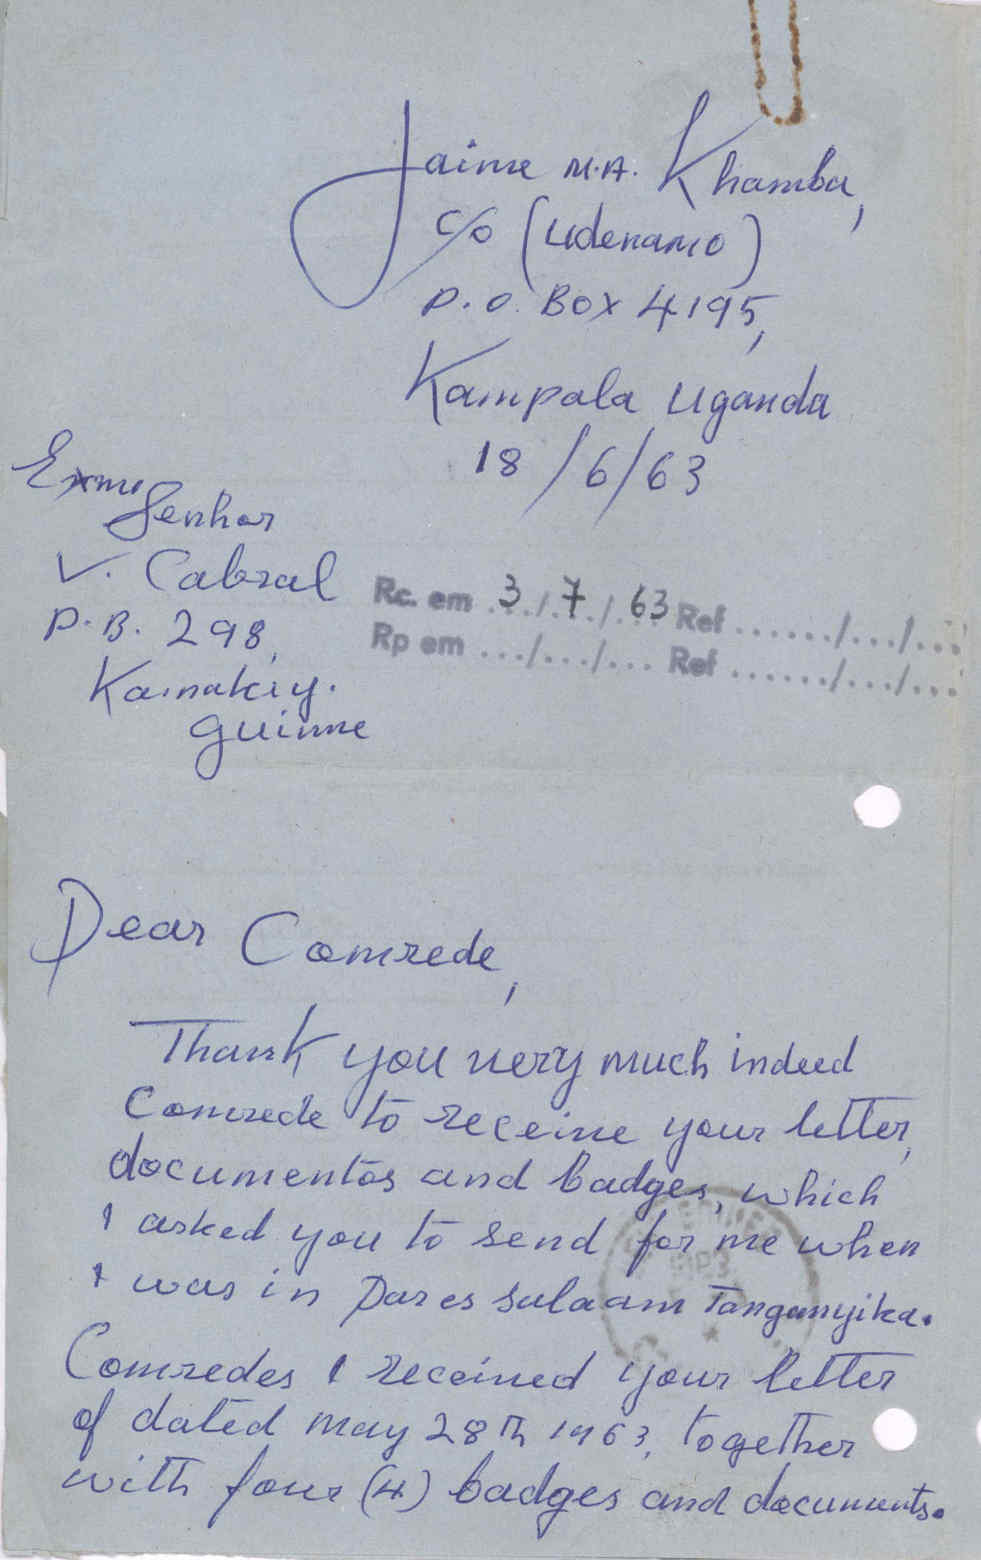 Jaime M.A. Khamba,
c/o (Udenamo)
P.O. BOX 4195,
Kampala Uganda
18/6/63
Exmo
Senhor
V. Cabral
P.B. 298,
Konakiy.
Guinne
Rc. em 3/7/63 Ref ....../.../...
Rp em .../.../... Ref ....../.../...
Dear Comrede,
Thank you very much indeed
Comrede to receive your letter,
documentos and badges, which
I asked you to send for me when
I was in Dar es salaam Tanganyika.
Comredes I received your letter
of dated may 28th 1963, together
with four (4) badges and documents.